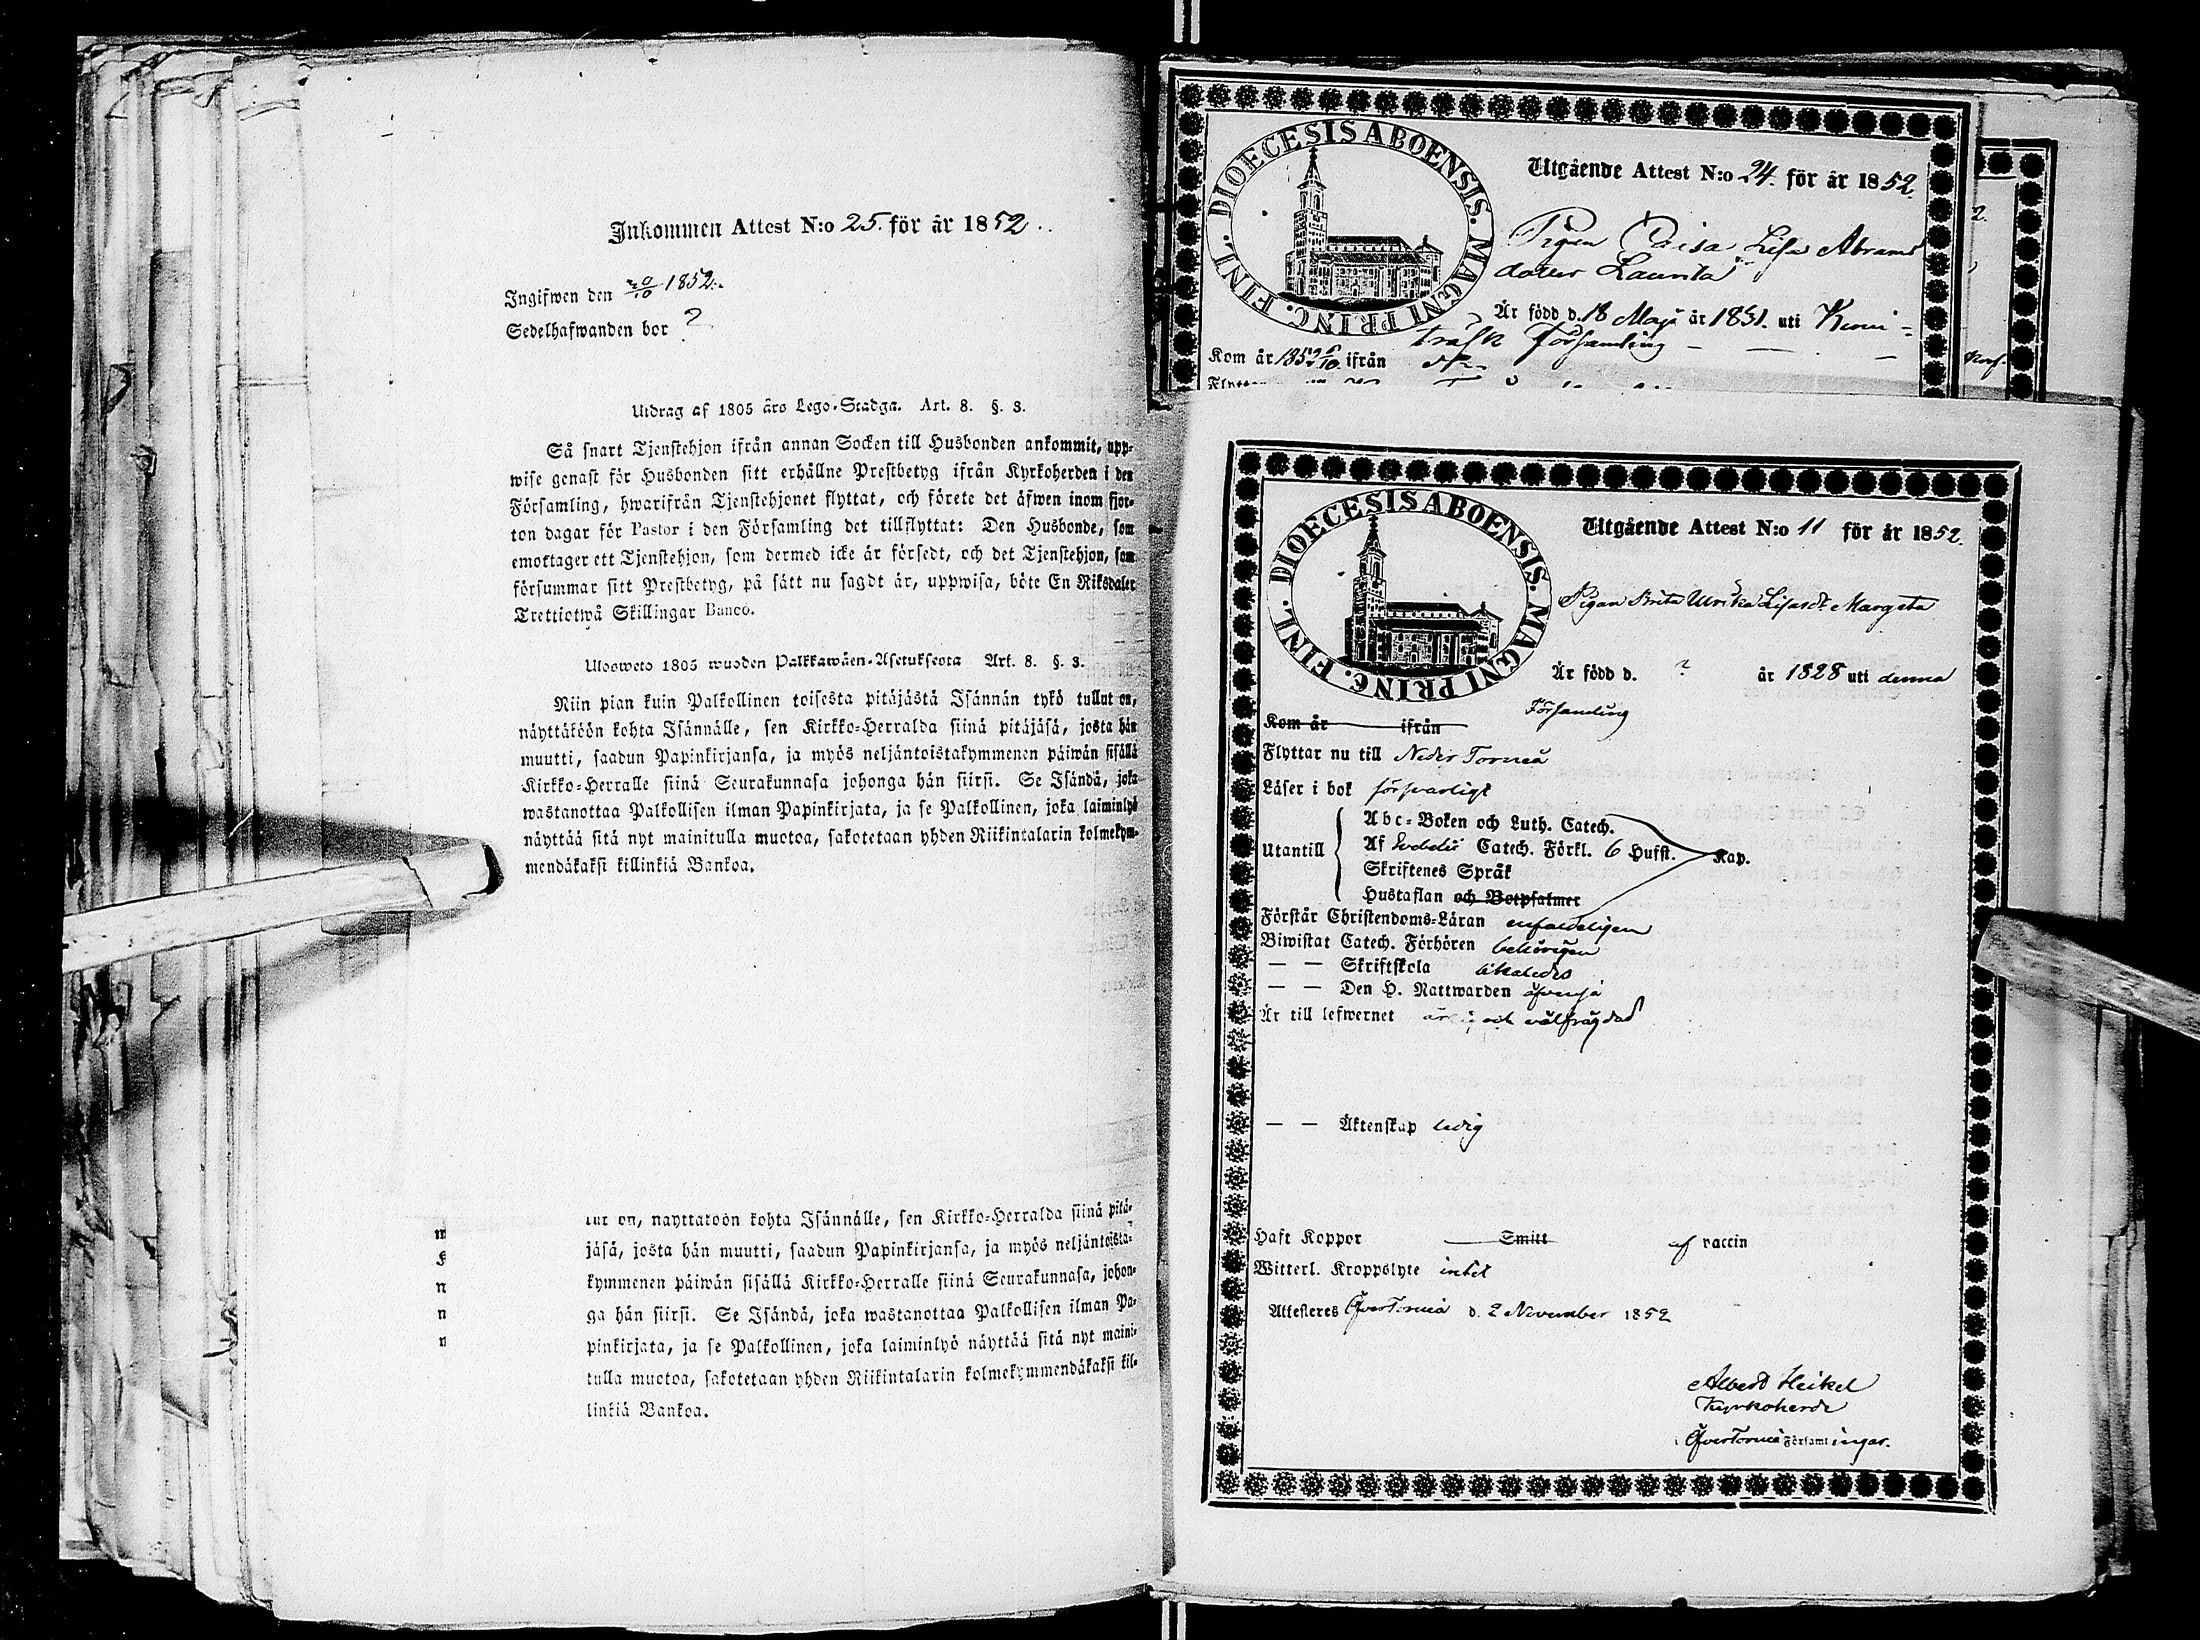 Inkommen Attest N:o 25. för år 1852.
Ingifwen den 20/10 1852.
Sedelhafwanden bor ?
Utdrag af 1805 års Lego-Stadga. Art. 8. §. 3.
Så snart Tjenstehjon ifrån annan Socken till Husbonden ankommit, upp-
wise genast för Husbonden sitt erhållne Prestbetyg ifrån Kyrkoherden i den
Församling, hwarifrån Tjenstehjonet flyttat, och förete det äfwen inom fjor-
ton dagar för Pastor i den Församling det tillflyttat: Den Husbonde, som
emottager ett Tjenstehjon, som dermed icke är försedt, och det Tjenstehjon, som
försummar sitt Prestbetyg, på sätt nu sagdt är, uppwisa, böte En Riksdaler
Trettiotwå Skillingar Banco.
Ulosweto 1805 wuoden Palkkawäen-Asetuksesta Art. 8. §. 3.
Niin pian kuin Palkollinen toisesta pitäjästä Isännän tykö tullut on,
näyttäköön kohta Isännälle, sen Kirkko-Herralda siinä pitäjäsä, josta hän
muutti, saadun Papinkirjansa, ja myös neljäntoistakymmenen päiwän sisällä
Kirkko-Herralle siinä Seurakunnasa johonga hän siirsi. Se Isändä, joka
wastanottaa Palkollisen ilman Papinkirjata, ja se Palkollinen, joka laiminlyö
näyttää sitä nyt mainitulla muotoa, sakotetaan yhden Riikintalarin kolmekym-
mendäkaksi killinkiä Bankoa.
lut on, näyttäköön kohta Isännälle, sen Kirkko-Herralda siinä pitä-
jäsä, josta hän muutti, saadun Papinkirjansa, ja myös neljäntoista-
kymmenen päiwän sisällä Kirkko-Herralle siinä Seurakunnasa, johon-
ga hän siirsi. Se Isändä, joka wastanottaa Palkollisen ilman Pa-
pinkirjata, ja se Palkollinen, joka laiminlyö näyttää sitä nyt maini-
tulla muotoa, sakotetaan yhden Riikintalarin kolmekymmendäkaksi kil-
linkiä Bankoa.
DIOECESIS ABOENSIS. MAGNI PRINC. FINL.
Utgående Attest N:o 24. för år 1852.
Pigan Caisa Lisa Abrams
dotter Laurila
Är född d. 18 Maji år 1831. uti Kemi-
träsk Församling
Kom år 1852 5/10. ifrån
DIOECESIS ABOENSIS. MAGNI PRINC. FINL.
Utgående Attest N:o 11 för år 1852.
Pigan Brita Ulrika Lisasdr Margeta
Är född d. ? år 1828 uti denna
Församling
Kom år ifrån
Flyttar nu till Neder Torneå
Läser i bok försvarligt
Utantill
Abc-Boken och Luth. Catech.
Af Svebelii Catech. Förkl. 6 Hufst. Kap.
Skriftenes Språk
Hustaflan och Botpsalmer
Förstår Christendoms-Läran enfaldeligen
Biwistat Catech. Förhören behörigen
— — Skriftskola likaledes
— — Den H. Nattwarden äfvenså
Är till lefwernet ärlig och välfrägdad
— — Äktenskap ledig
Haft Koppor Smitt af vaccin
Witterl. Kroppslyte intet
Attesteres ÖfverTorneå d. 2 November 1852
Albert Heikel
Kyrkoherde
i ÖfverTorneå Församlingar.